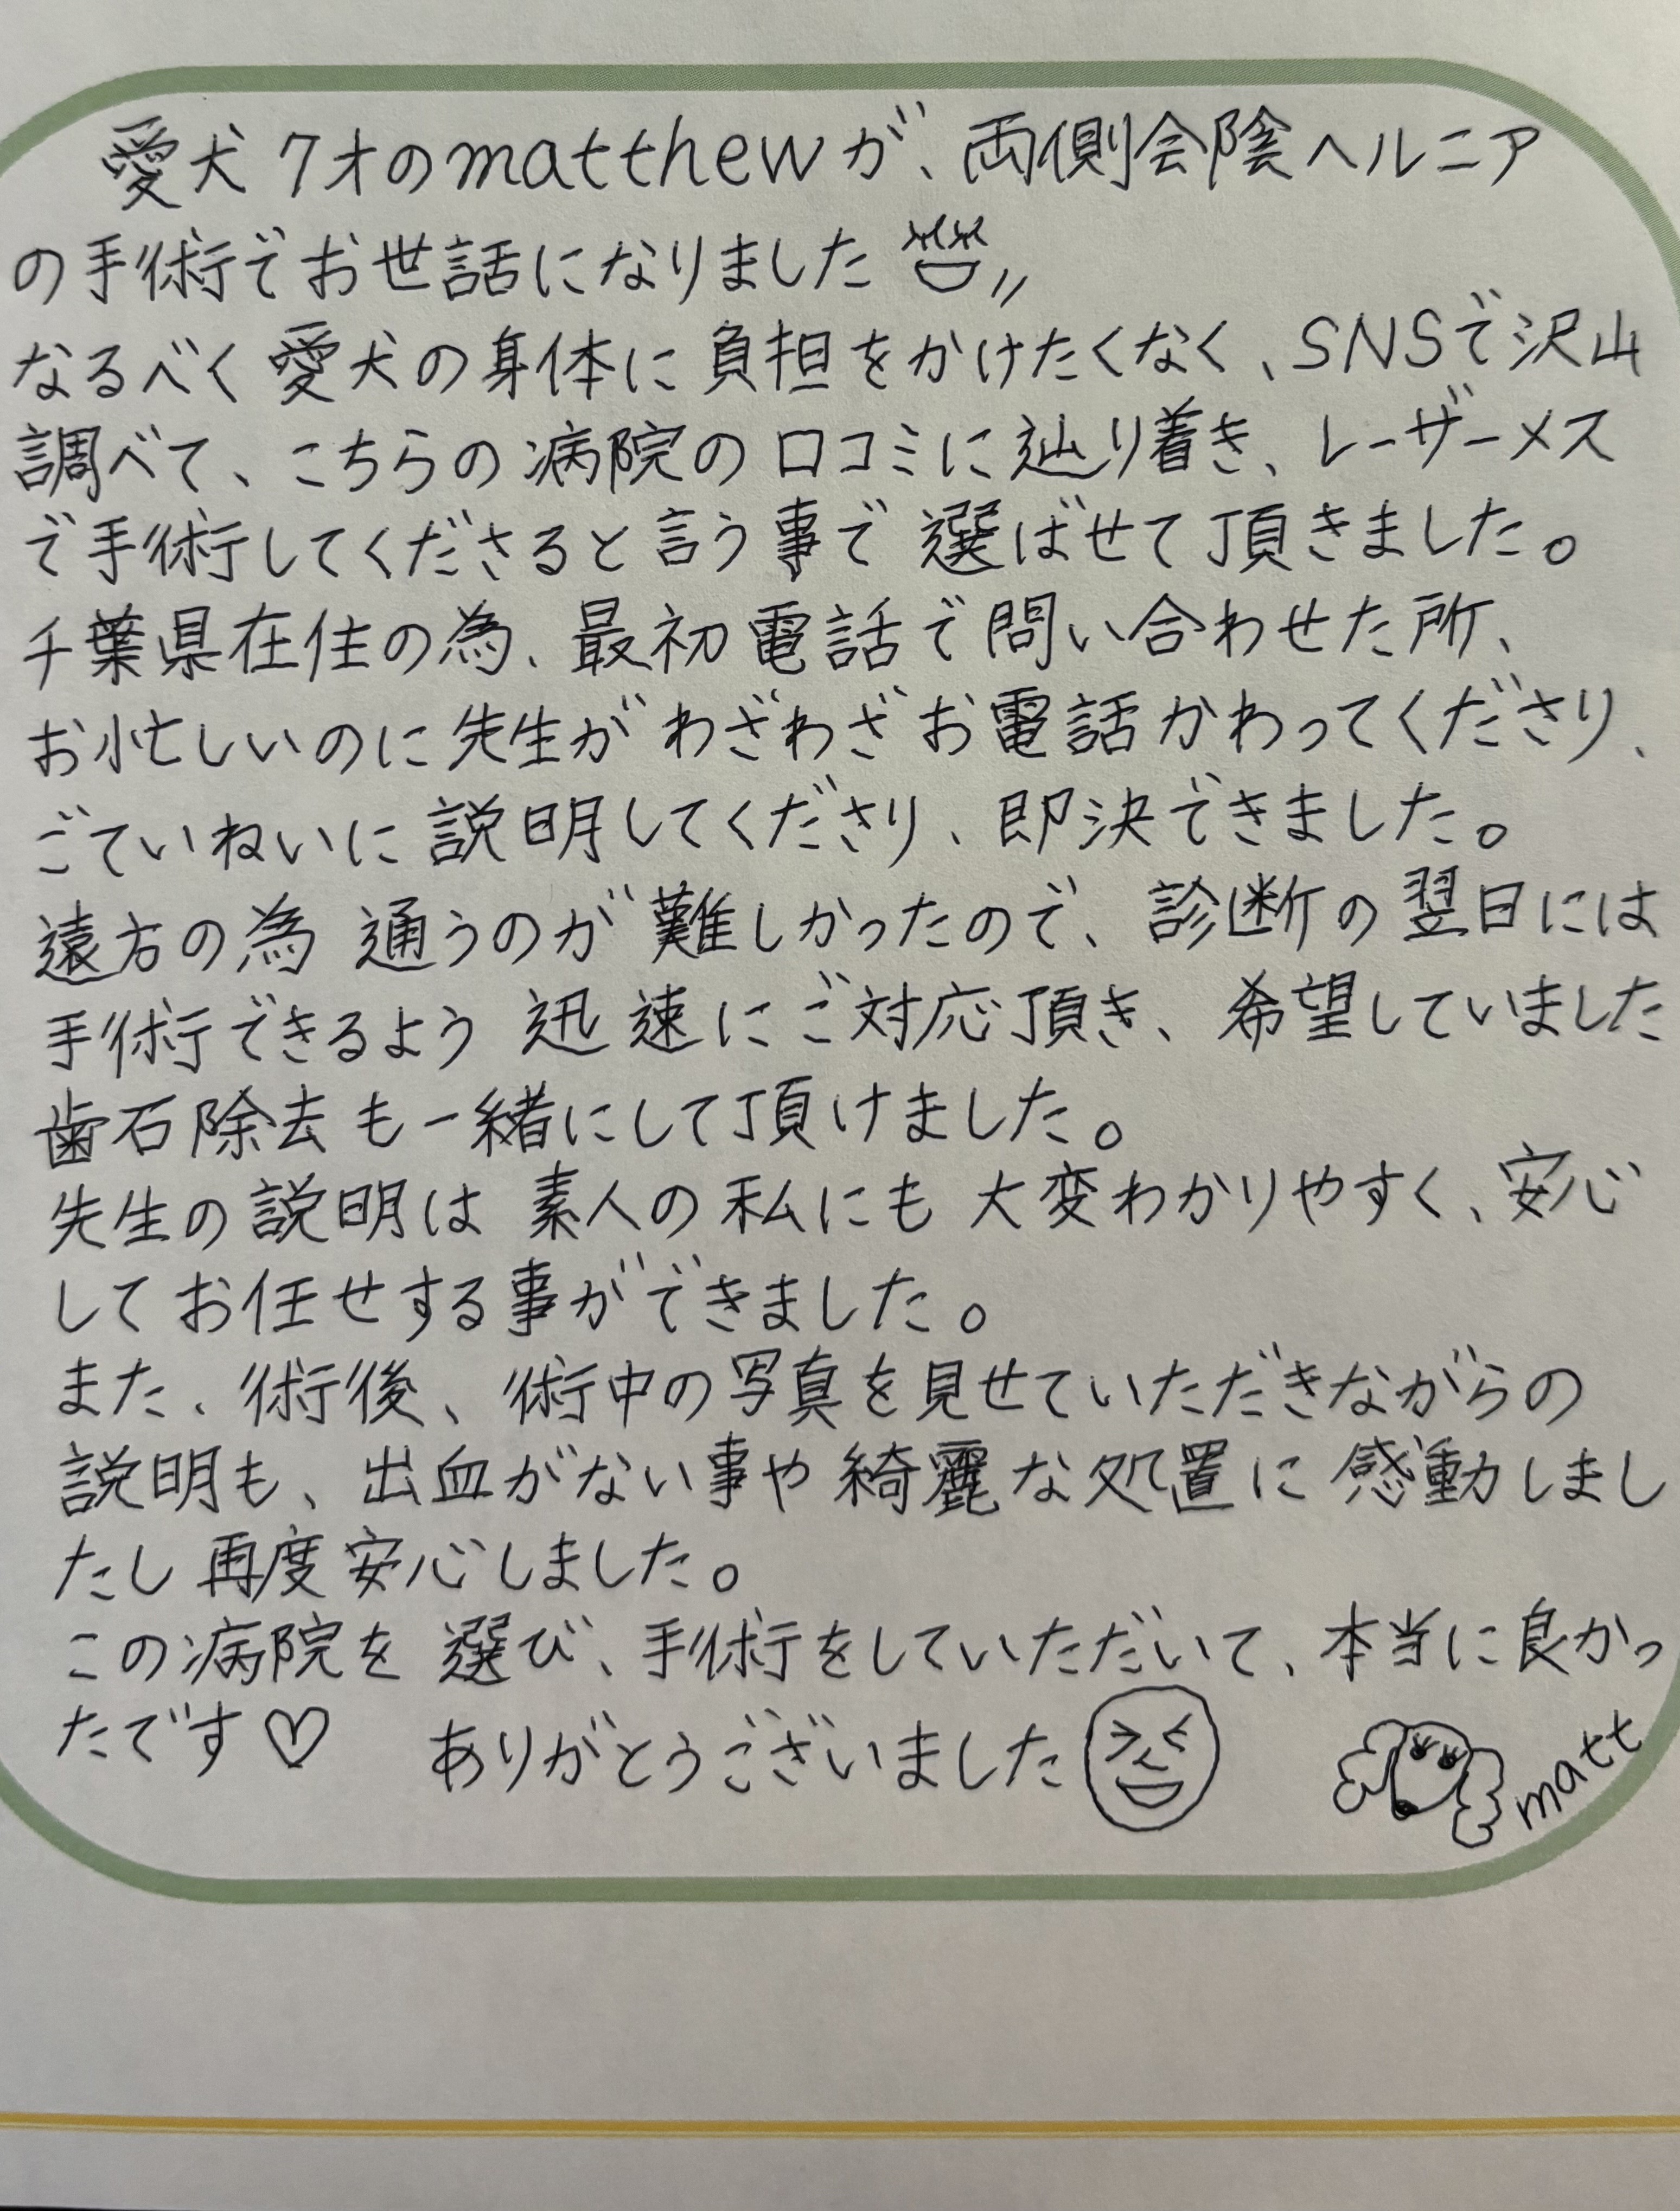 愛犬7才のmatthewが、両側会陰ヘルニア
の手術でお世話になりました
なるべく愛犬の身体に負担をかけたくなく、SNSで沢山
調べて、こちらの病院の口コミに辿り着き、レーザーメス
で手術してくださると言う事で選ばせて頂きました。
千葉県在住の為、最初電話で問い合わせた所、
お忙しいのに先生がわざわざお電話かわってくださり、
ごていねいに説明してくださり、即決できました。
遠方の為通うのが難しかったので、診断の翌日には
手術できるよう迅速にご対応頂き、希望していました
歯石除去も一緒にして頂けました。
先生の説明は素人の私にも大変わかりやすく、安心
してお任せする事ができました。
また、術後、術中の写真を見せていただきながらの
説明も、出血がない事や綺麗な処置に感動しまし
たし再度安心しました。
この病院を選び、手術をしていただいて、本当に良かっ
たです♡ ありがとうございました
matt